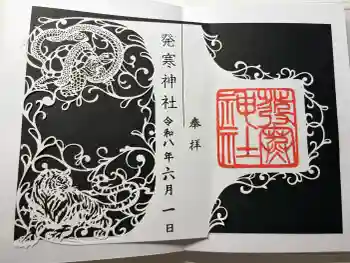 奉拝
発寒神社
令和八年六月一日
発寒
神社